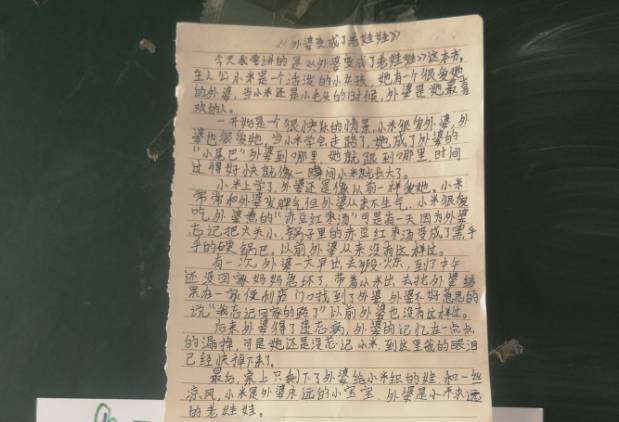 《外婆变成了老娃娃》
今天我要讲的是《外婆变成了老娃娃》这本书。
主人公小米是个活泼的小女孩,她有一个很爱她
的外婆,当小米还是小毛头的时候,外婆是她最喜
欢的人。
一开始是个很快乐的情景,小米很爱外婆,外
婆也很爱她,当小米学会走路了,她成了外婆的
"小尾巴"外婆到哪里,她就跟到哪里时间
过得好快就像一瞬间小米就长大了。
小米上学了,外婆还是像以前一样爱她。小米
常常和外婆发脾气但外婆从来不生气,小米很爱
吃外婆煮的"赤豆红枣汤"可是有一天因为外婆
忘记把火关小,锅子里的赤豆红枣汤变成了黑乎
乎的硬锅巴,以前外婆从来没有这样过。
有一次,外婆一大早出去锻炼,到了中午
还没回家妈妈急坏了,带着小米出去找外婆结
果在一家便利店门口找到了外婆,外婆不好意思的
说"我忘记回家的路了"以前外婆也没有这样过。
后来外婆得了遗忘病,外婆的记忆在一点点
的漏掉,可是她还是没忘记小米,到这里我的眼泪
已经快掉下来了。
最后,桌上只剩下了外婆给小米织的娃,和一丝
凉风,小米是外婆永远的小宝宝,外婆是小米永远
的老娃娃。